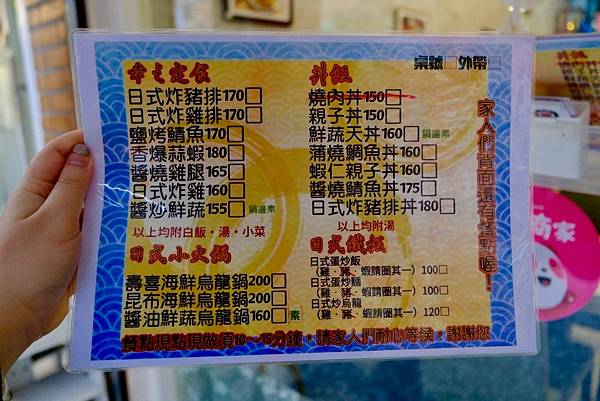 桌號□ 外帶□
幸之定飯
日式炸豬排170□
日式炸雞排170□
鹽烤鯖魚170□
香爆蒜蝦180□
醬燒雞腿165□
日式炸雞160□
醬炒鮮蔬155□鍋邊素
以上均附白飯・湯・小菜
日式小火鍋
壽喜海鮮烏龍鍋200□
昆布海鮮烏龍鍋200□
醬油鮮蔬烏龍鍋160□素
丼飯
燒肉丼150□
親子丼150□
鮮蔬天丼160□鍋邊素
蒲燒鯛魚丼160□
蝦仁親子丼160□
醬燒鯖魚丼175□
日式炸豬排丼180□
以上均附湯
日式鐵板
日式蛋炒飯
(雞．豬．蝦請圈其一) 100□
日式蛋炒麵
(雞．豬．蝦請圈其一) 100□
日式炒烏龍
(雞．豬．蝦請圈其一) 120□
家人們背面還有餐點喔！
餐點現點現做須10~15分鐘，請家人們耐心等候，謝謝您
丼飯
商家